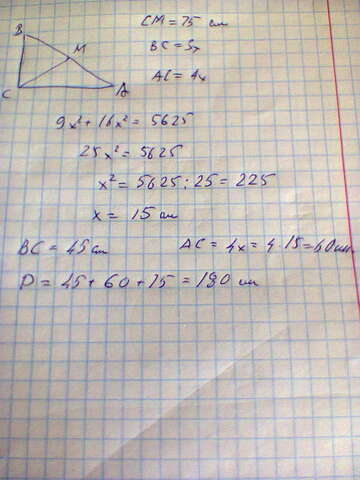 B
M
C
A
CM = 75 см
BC = 3x
AC = 4x
9x² + 16x² = 5625
25x² = 5625
x² = 5625 : 25 = 225
x = 15 см
BC = 45 см
AC = 4x = 4·15 = 60 см
P = 45 + 60 + 75 = 180 см